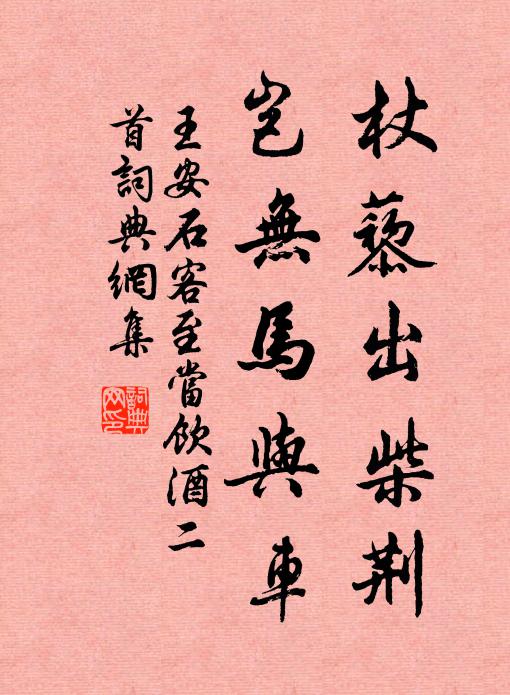 杖藜出柴荆
豈無馬與車
王安石客至當飲酒二
首詞典網集
詞典
网印